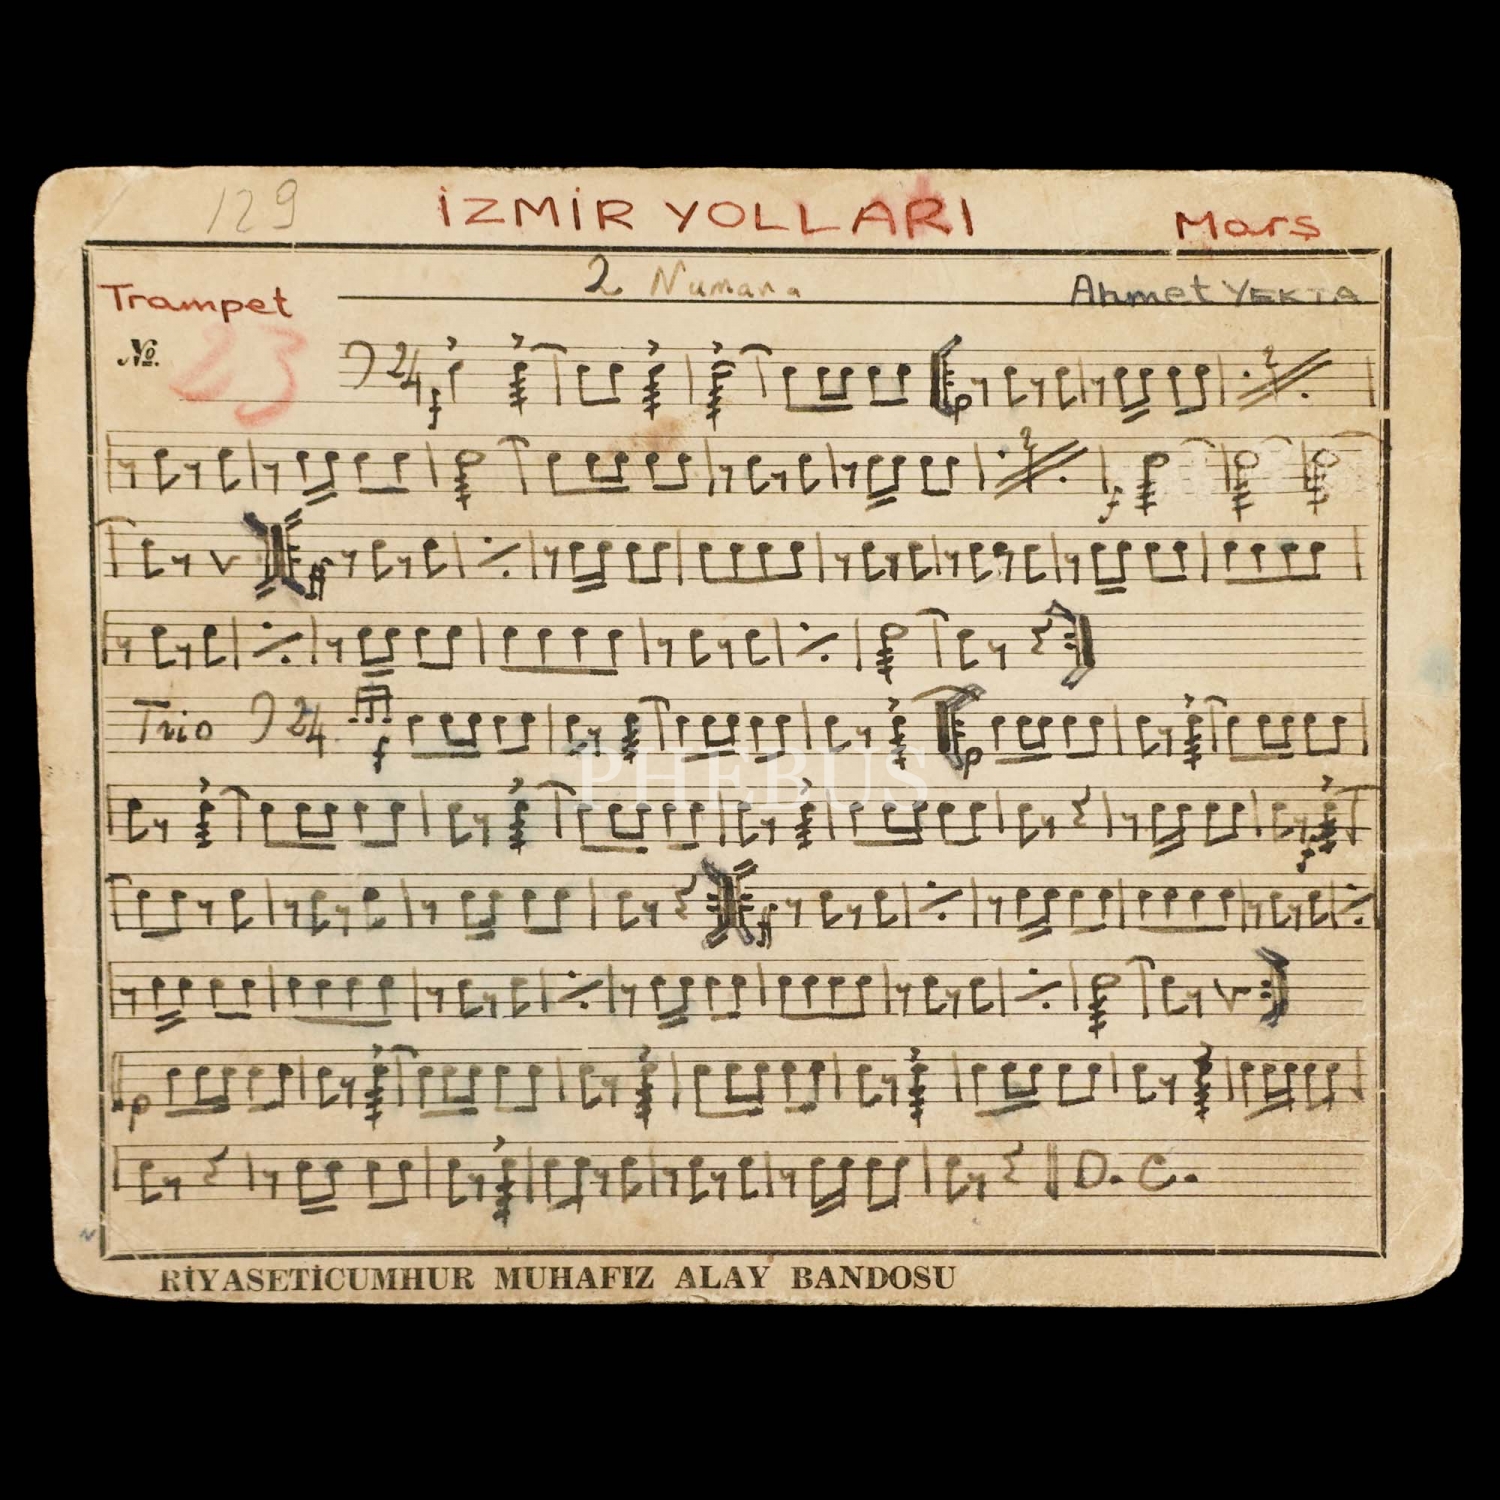 129 İZMİR YOLLARI Marş
Trampet 2 Numara Ahmet YEKTA
№ 23
2/4 f p 2
2 f
ff
Trio 2/4 f p
PHEBUS
f
ff
p
D. C.
RİYASETİCUMHUR MUHAFIZ ALAY BANDOSU